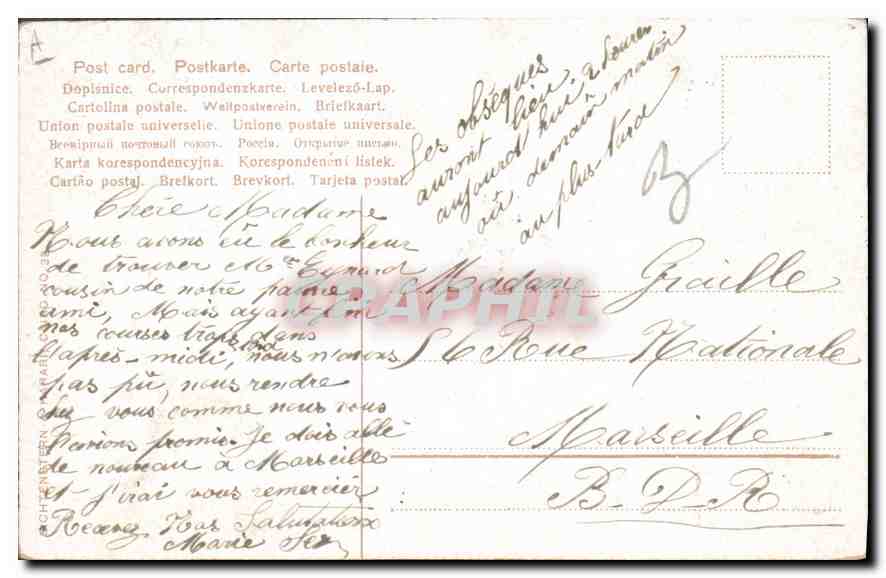 A
Post card. Postkarte. Carte postale.
Dopisnice. Correspondenzkarte. Levelező-Lap.
Cartolina postale. Weltpostverein. Briefkaart.
Union postale universelle. Unione postale universale.
Всемірный почтовый союзъ. Россія. Открытое письмо.
Karta korespondencyjna. Korespondenční lístek.
Cartão postal. Brefkort. Brevkort. Tarjeta postal.
Les obsèques
auront lieu
aujourd'hui à 2 heures
où demain matin
au plus tard
Chère Madame
Nous avons eû le bonheur
de trouver Mr Eynard
cousin de notre pauvre
ami, Mais ayant fini
nos courses trop dans
l'après-midi, nous n'avons
pas pû, nous rendre
chez vous comme nous vous
l'avions promis. Je dois allé
de nouveau à Marseille
et j'irai vous remercier
Recevez Nos Salutations
Marie
Madame Graille
56 Rue Nationale
Marseille
B.D.R
CPAPHIL